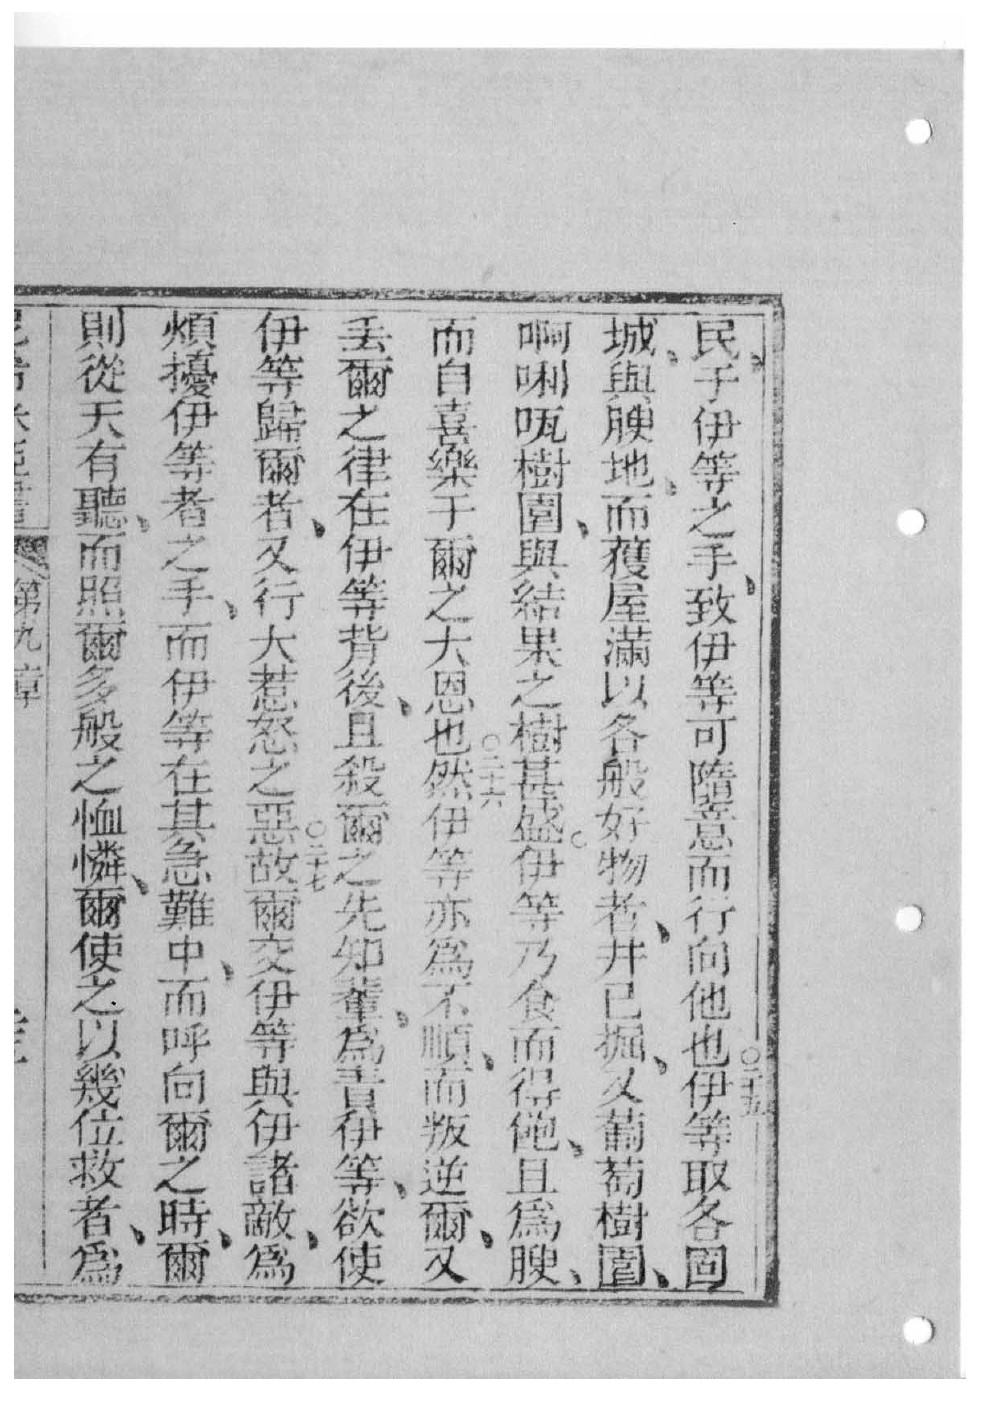 民、于伊等之手、致伊等可隨意而行向他也○二十五伊等取各固
城、與腴地、而獲屋滿以各般好物者、井已掘、又葡萄樹園、
啊唎㕦樹園、與結果之樹甚盛。伊等乃食而得飽、且為腴、
而自喜樂于爾之大恩也○二十六然伊等亦為不順、而叛逆爾、又
丢爾之律在伊等背後、且殺爾之先知輩、為責伊等、欲使
伊等歸爾者、又行大惹怒之惡○二十七故爾交伊等與伊諸敵、為
煩擾伊等者之手、而伊等在其急難中、而呼向爾之時、爾
則從天有聽、而照爾多般之恤憐、爾使之以幾位救者、為
第九章